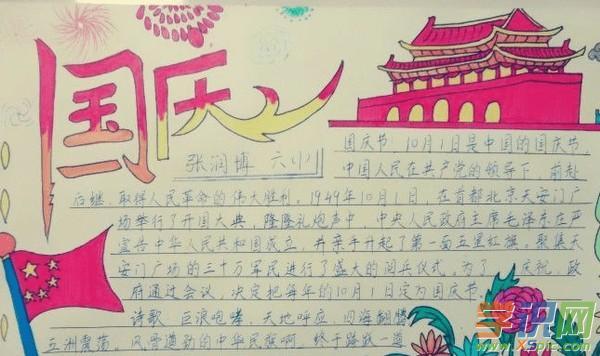 国庆
张润博 六(1)
国庆节,10月1日是中国的国庆节,
中国人民在共产党的领导下,前赴
后继,取得人民革命的伟大胜利。1949年10月1日,在首都北京天安门广
场举行了开国大典,隆隆礼炮声中,中央人民政府主席毛泽东在庄
宣告中华人民共和国成立,并亲手升起了第一面五星红旗。聚集天
安门广场的三十万军民进行了盛大的阅兵仪式。为了 庆祝,政
府通过会议,决定把每年的10月1日定为国庆节。
诗歌:巨浪咆哮,天地呼应,四海翻腾
五洲震荡。风雪道劲的中华民族啊,终于踏跃一道
学识网
www.Xspic.com